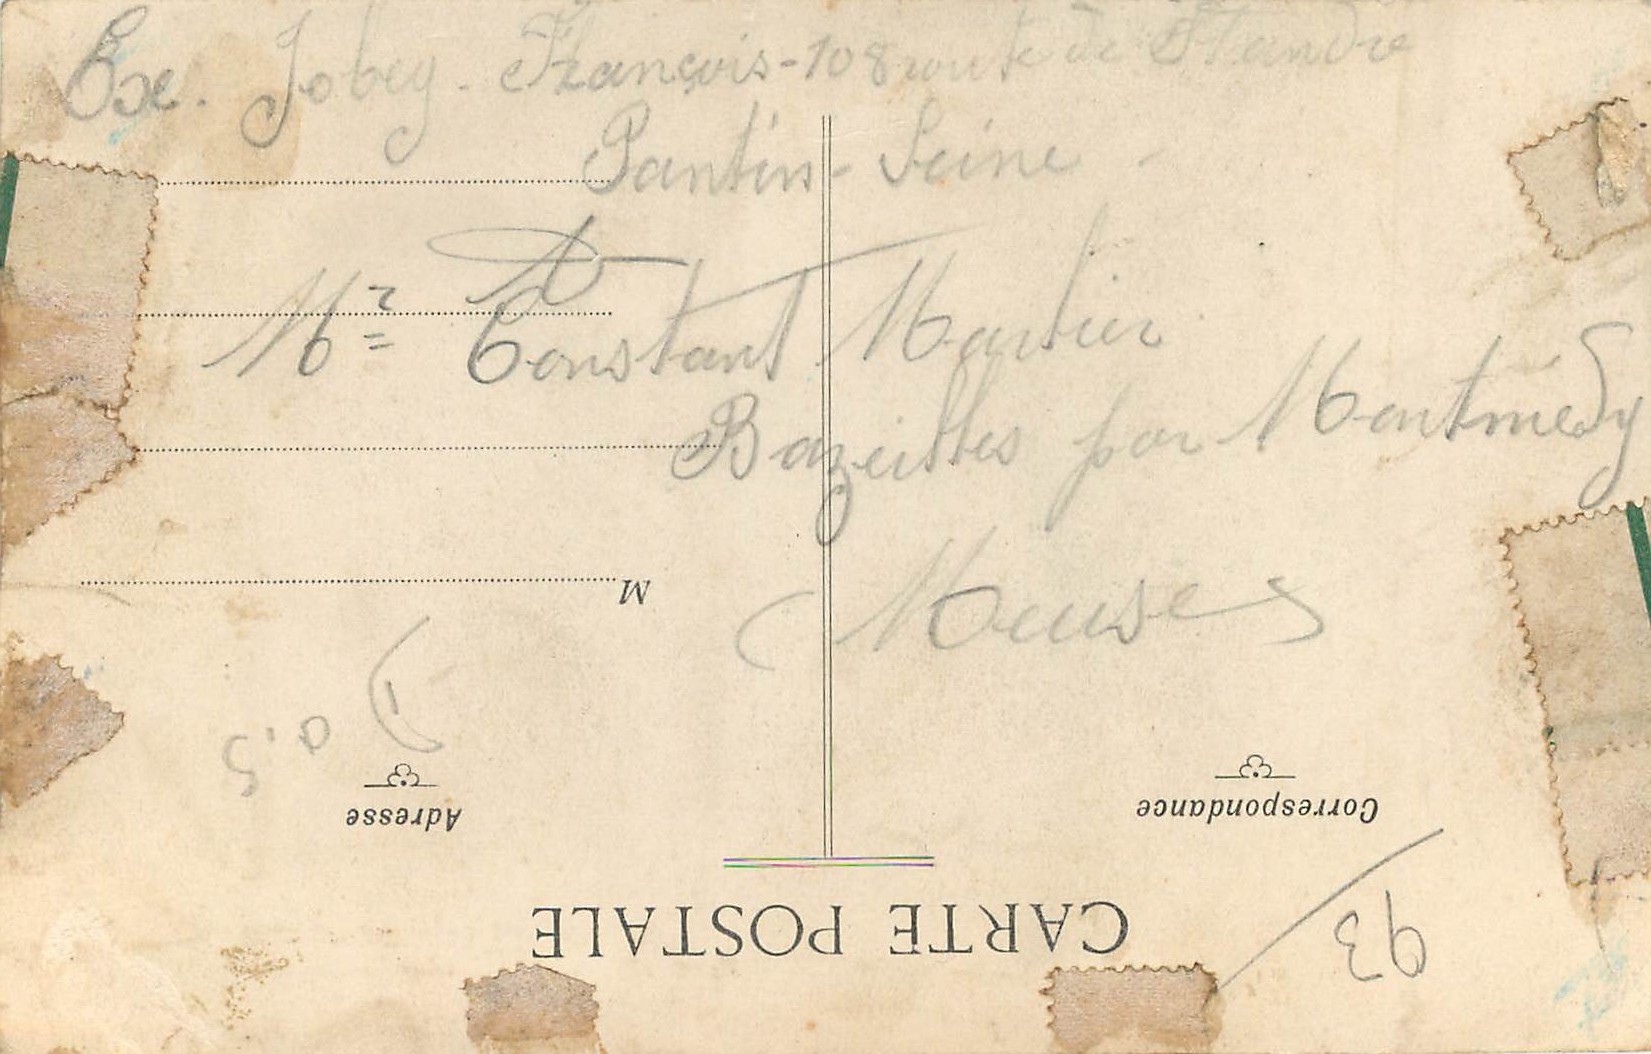 Exe. Jobey. François - 108 route de Flandre
Pantin - Seine -
A
Mr Constant Martin
Bazeilles par Montmédy
Meuse
CARTE POSTALE
Correspondance
Adresse
M
93